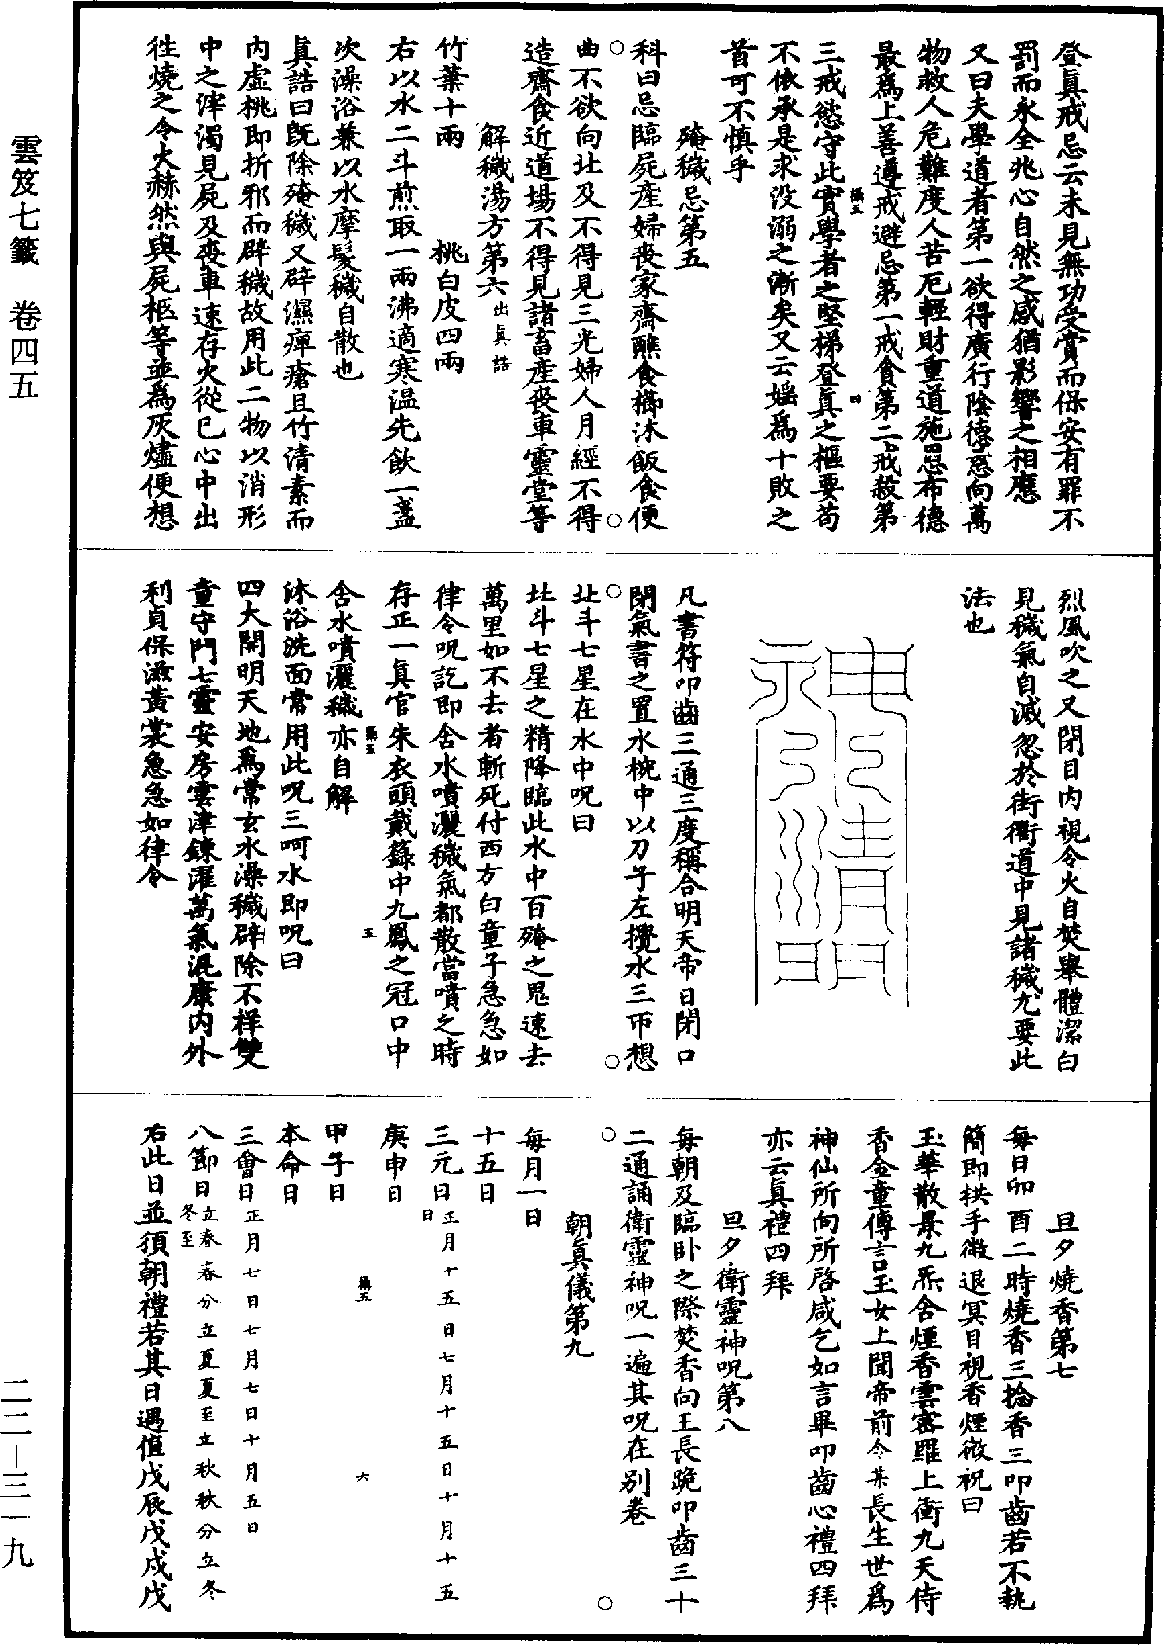 雲笈七籤　卷四五
二二—三一九
登眞戒忌云未見無功受賞而保安有罪不
罰而永全兆心自然之感猶影響之相應
又曰夫學道者第一欲得廣行陰德慈向萬
物救人危難度人苦厄輕財重道施恩布德
最爲上善遵戒避忌第一戒貪第二戒殺第
三戒慾守此實學者之堅梯登真之樞要苟
不依承是求没溺之漸矣又云婬爲十敗之
首可不慎乎
殗穢忌第五
科曰忌臨屍產婦喪家齋醮食櫛沐飯食便
曲不欲向北及不得見三光婦人月經不得
造齋食近道場不得見諸畜産喪車靈堂等
解穢湯方第六出真誥
竹葉十兩　桃白皮四兩
右以水二斗煎取一兩沸適寒温先飲一盞
次澡浴兼以水摩髮穢自散也
眞誥曰旣除殗穢又辟濕痺瘡且竹清素而
内虚桃即折邪而辟穢故用此二物以消形
中之滓濁見屍及喪車速存火從已心中出
往燒之令火赫然與屍柩等並爲灰燼便想
烈風吹之又閉目内視令火自焚舉體潔白
見穢氣自滅忽於街衢道中見諸穢尤要此
法也
凡書符叩齒三通三度稱合明天帝日閉口
閉氣書之置水椀中以刀子左攪水三帀想
北斗七星在水中呪曰
北斗七星之精降臨此水中百殗之鬼速去
萬里如不去者斬死付西方白童子急急如
律令呪訖即含水噴灑穢氣都散當噴之時
存正一真官朱衣頭戴籙中九鳳之冠口中
含水噴灑穢亦自解
沐浴洗面常用此呪三呵水即呪曰
四大開明天地爲常玄水澡穢辟除不祥雙
童守門七靈安房雲津鍊濯萬氣混康内外
利貞保滋黄裳急急如律令
旦夕燒香第七
每日卯酉二時燒香三捻香三叩齒若不執
簡即拱手微退冥目視香煙微祝曰
玉華散景九炁含煙香雲密羅上衝九天侍
香金童傳言玉女上聞帝前令某長生世爲
神仙所向所啓咸乞如言畢叩齒心禮四拜
亦云真禮四拜
旦夕衛靈神呪第八
每朝及臨卧之際焚香向王長跪叩齒三十
二通誦衛靈神呪一遍其呪在別卷
朝真儀第九
每月一日
十五日
三元日正月十五日七月十五日十月十五日
庚申日
甲子日
本命日
三會日正月七日七月七日十月五日
八節日立春春分立夏夏至立秋秋分立冬冬至
右此日並須朝禮若其日遇值戊辰戊戌戊